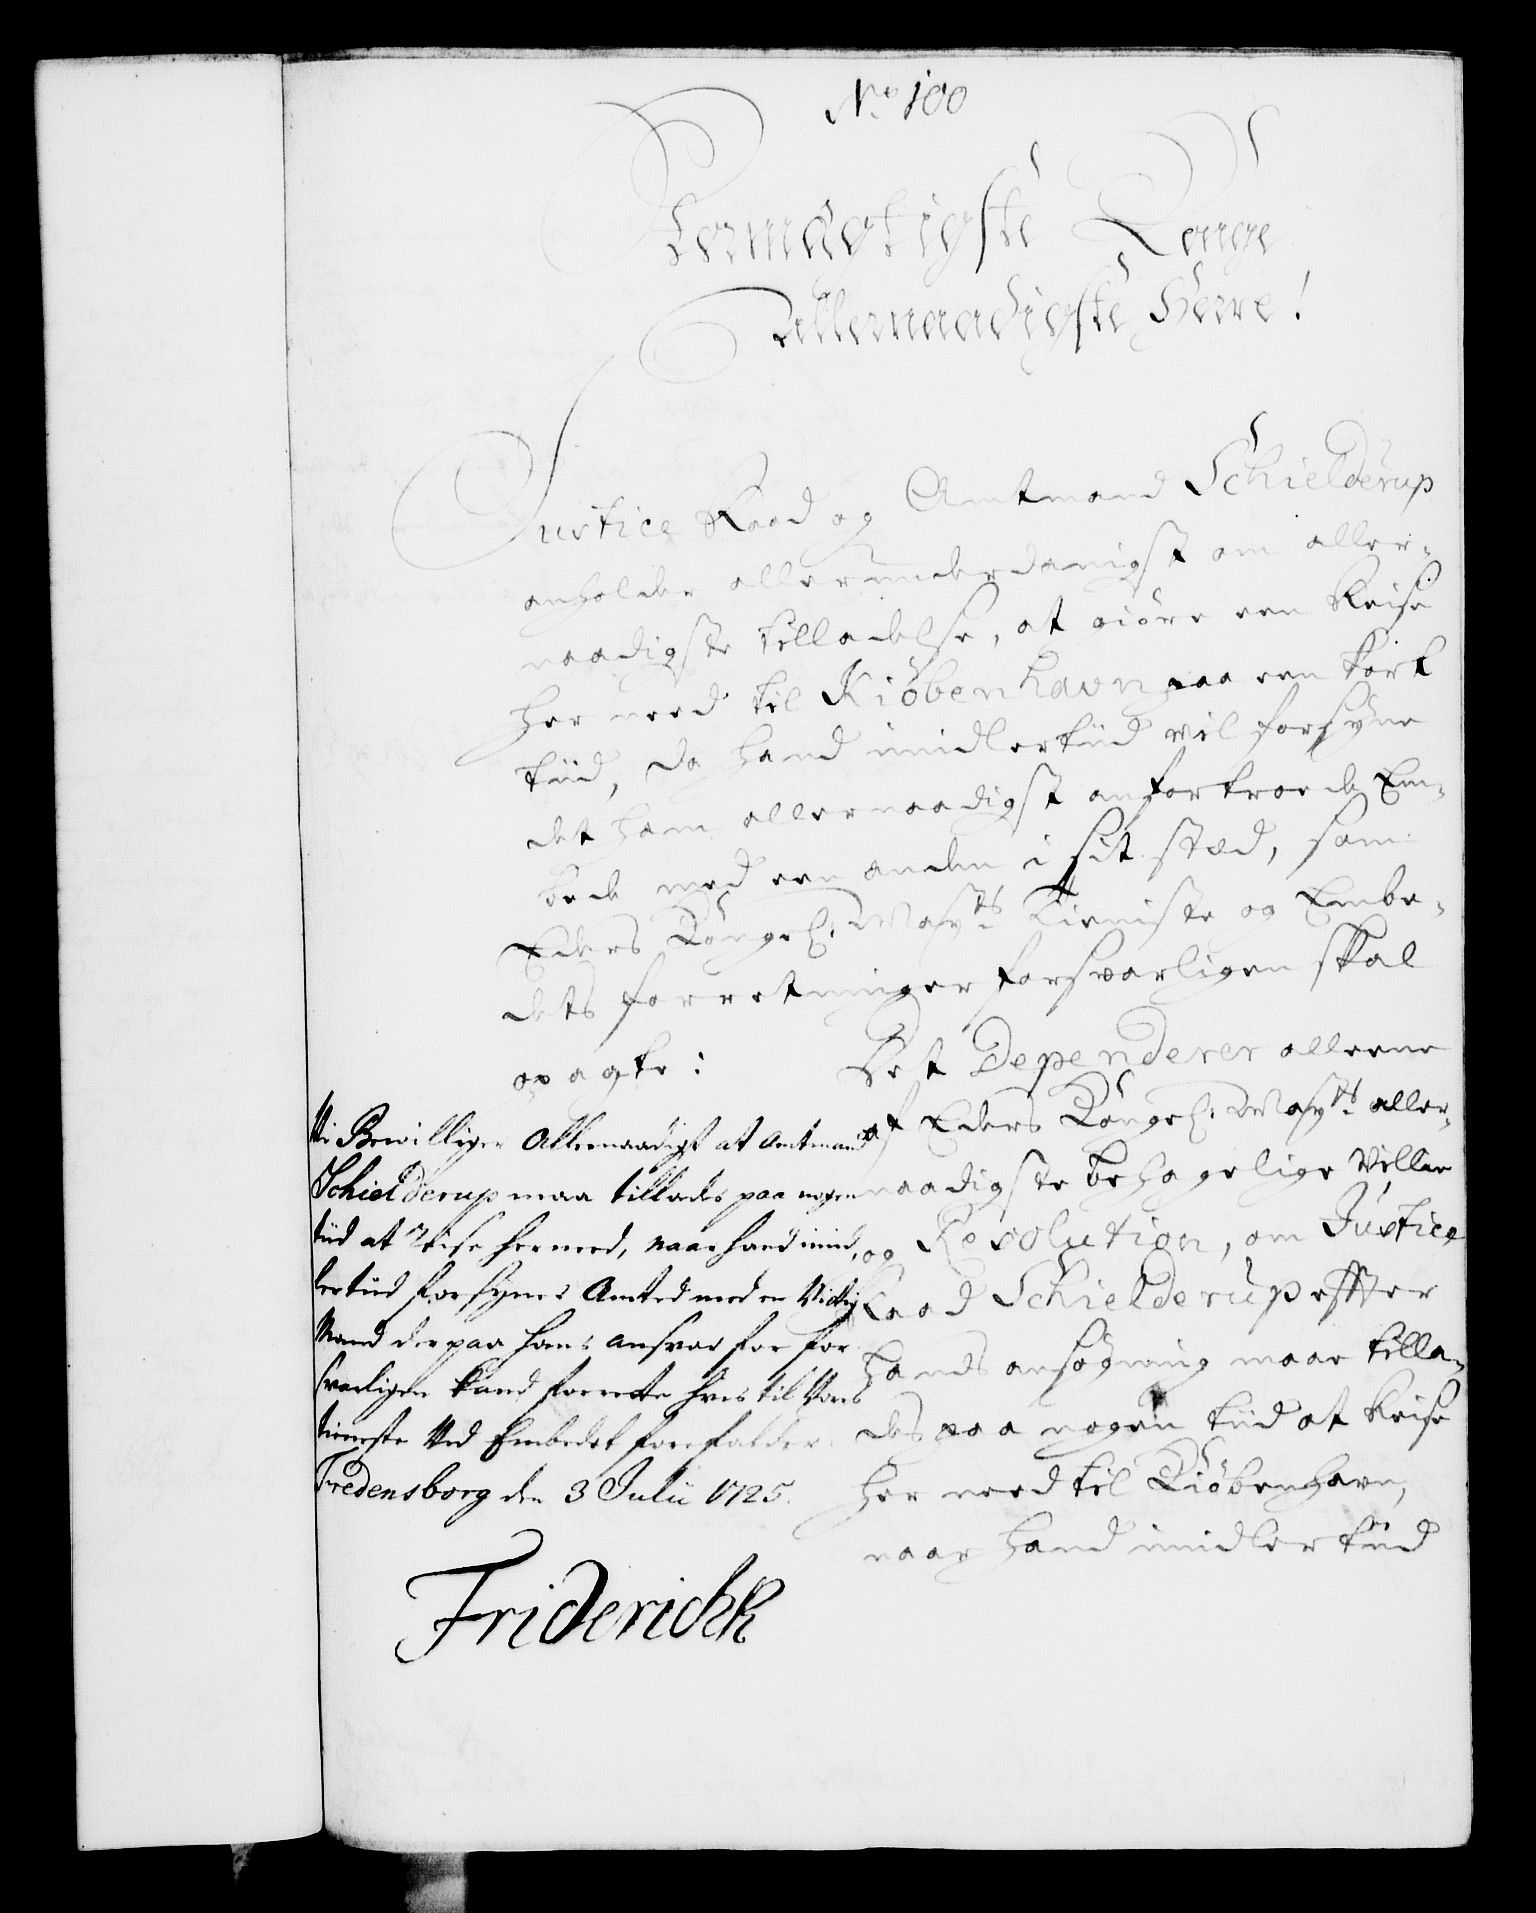 No 100
Stormægtigste Konge
Allernaadigste Herre!
Justice Raad og Amtmand Schielderup
anholder allerunderdanigst om aller-
naadigste tilladelse, at giöre een Reise
her need til Kiöbenhavn paa een kort
tiid, da hand imidlertiid vil forsyne
det ham allernaadigst anfortroede Em-
bede med een anden i sit sted, som
Eders Kongel: Mayts Tieniste og Embe-
dets forretninger forsvarligen skal
opagte:
Det Dependerer alleene
af Eders Kongel: Mayts aller-
naadigste behagelige Villie
og Resolution, om Justice
Raad Schielderup effter
hands ansögning maae tilla-
des paa nogen tiid at Reise
her need til Kiöbenhavn,
naar hand imidlertiid
Vi Bewilliger Allernaadigst at Amtmand
Schielderup maa tillades paa nogen
tiid at Reise her need, naar hand imid-
lertiid forsyner Amted med en Vittig
Mand der paa hans ansvar for for-
svarligen kand forrette hves til Vores
tieneste Ved Embedet forefalder.
Fredensborg den 3 Julii 1725.
Friderich R